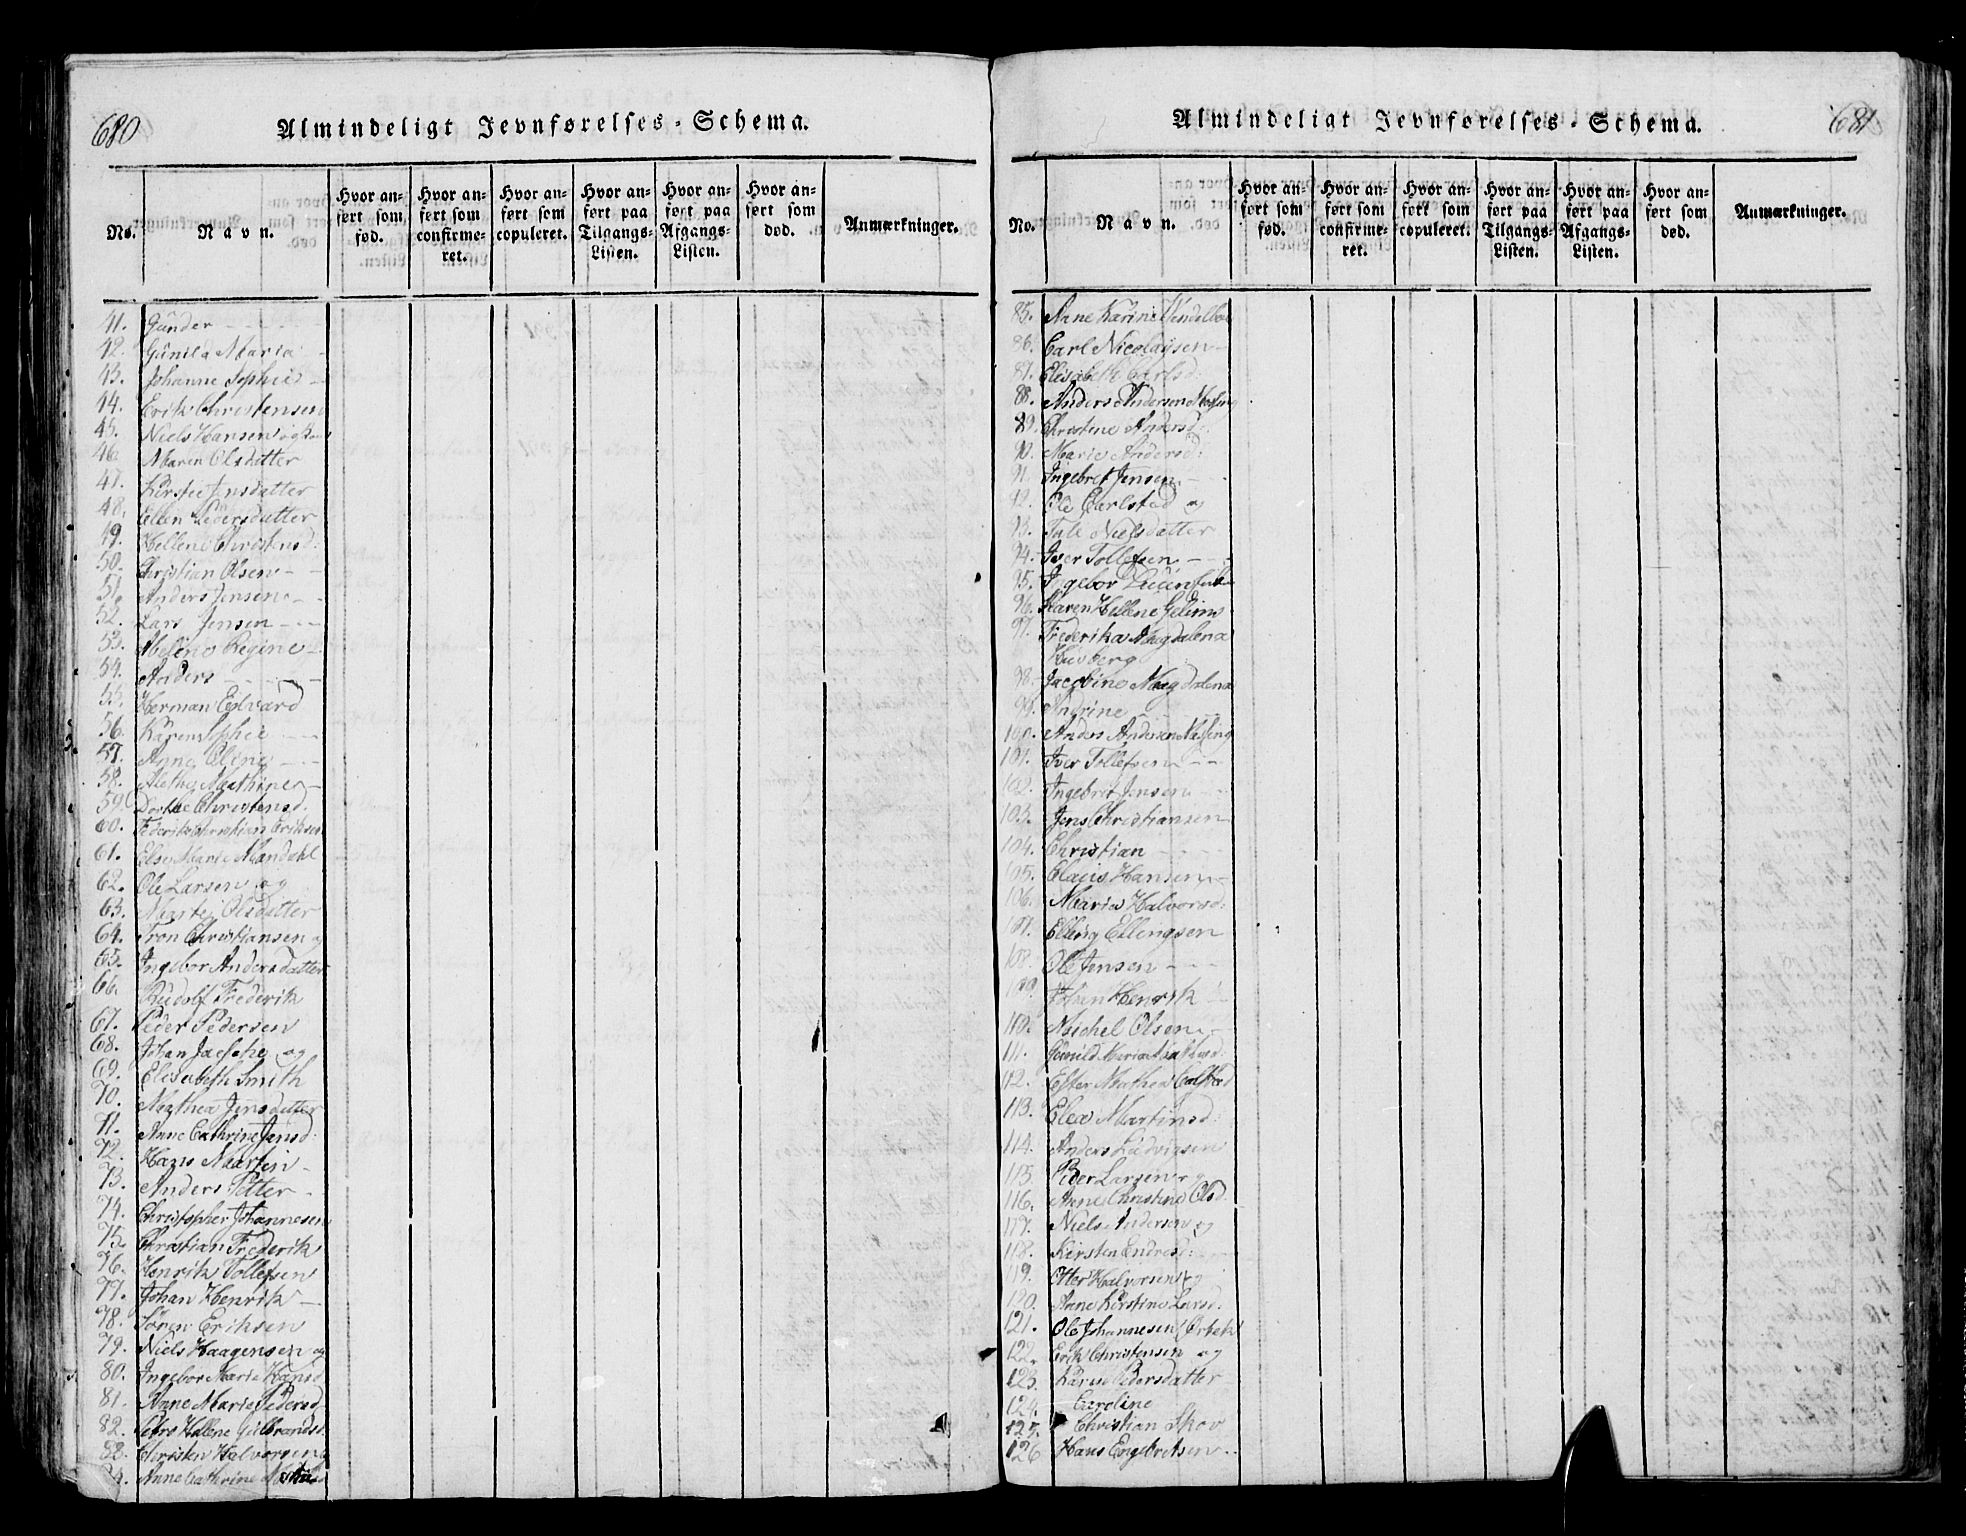 680
Almindeligt Jevnførelses-Schema.
No. | Navn. | Hvor anført som fød. | Hvor anført som confirmeret. | Hvor anført som copuleret. | Hvor anført paa Tilgangs-Listen. | Hvor anført paa Afgangs-Listen. | Hvor anført som død. | Anmærkninger.
41. Gunder
42. Gunild Maria
43. Johanne Sophie
44. Erik Christensen
45. Niels Hansen og
46. Maren Olsdatter
47. Kirstie Jensdatter
48. Ellen Pedersdatter
49. Hellene Christensd:
50. Christian Olsen
51. Anders Jensen
52. Lars Jensen
53. Regine
54. Anders
55. Herman Edvard
56. Karen Sophie
57. Anne Oline
58. Mathine
59. Dorthe Christensd.
60. Federik Christian Eriksen
61. Else Marie Mandahl
62. Ole Larsen og
63. Marte Olsdatter
64. Tron Christiansen og
65. Ingebor Andersdatter
66. Rudolf Frederik
67. Peder Pedersen
68. Johan og
69. Elisabeth Smith
70. Mathea Jensdatter
71. Anne Cathrine Jensd:
72. Hans Martin
73. Anders Petter
74. Christopher Johannesen
75. Christian Frederik
76. Henrik Tollefsen
77. Johan Henrik
78. Søren Eriksen
79. Niels Haagensen og
80. Ingebor Marie Hansd
81. Anne Marie Pedersd
82. Hellene Gulbrandsd.
83. Christen Halvorsen
84. Anne Cathrine
681
Almindeligt Jevnførelses-Schema.
No. | Navn. | Hvor anført som fød. | Hvor anført som confirmeret. | Hvor anført som copuleret. | Hvor anført paa Tilgangs-Listen. | Hvor anført paa Afgangs-Listen. | Hvor anført som død. | Anmærkninger.
85. Anne Karine
86. Carl Nicolaysen
87. Elisabeth Carlsd:
88. Anders Andersen Messing
89. Christine Andersd:
90. Marie Andersd:
91. Ingebret Jensen
92. Ole Carlstad og
93. Nielsdatter
94. Iver Tollefsen
95. Ingebor
96. Karen Hellene
97. Frederika Magdalena
98. Jacobine Magdalena
99. Andrine
100. Anders Andersen Messing
101. Iver Tollefsen
102. Ingebret Jensen
103. Jens Christiansen
104. Christian
105. Claus Hansen
106. Maria Halvorsd:
107. Elling Ellingsen
108. Ole Jensen
109. Johan Henrik
110. Michel Olsen
111. Gunild Maria
112. Ester Mathea
113. Elea Martinsd:
114. Anders Ludvigsen
115. Peder Larsen og
116. Anne Christine Olsd.
117. Niels Andersen og
118. Kirsten Endresd:
119. Otter Halvorsen og
120. Anne Kirstine Larsd:
121. Ole Johannesen
122. Erik Christensen og
123. Karen Pedersdatter
124. Caroline
125. Christian Skov
126 Hans Engebretsen